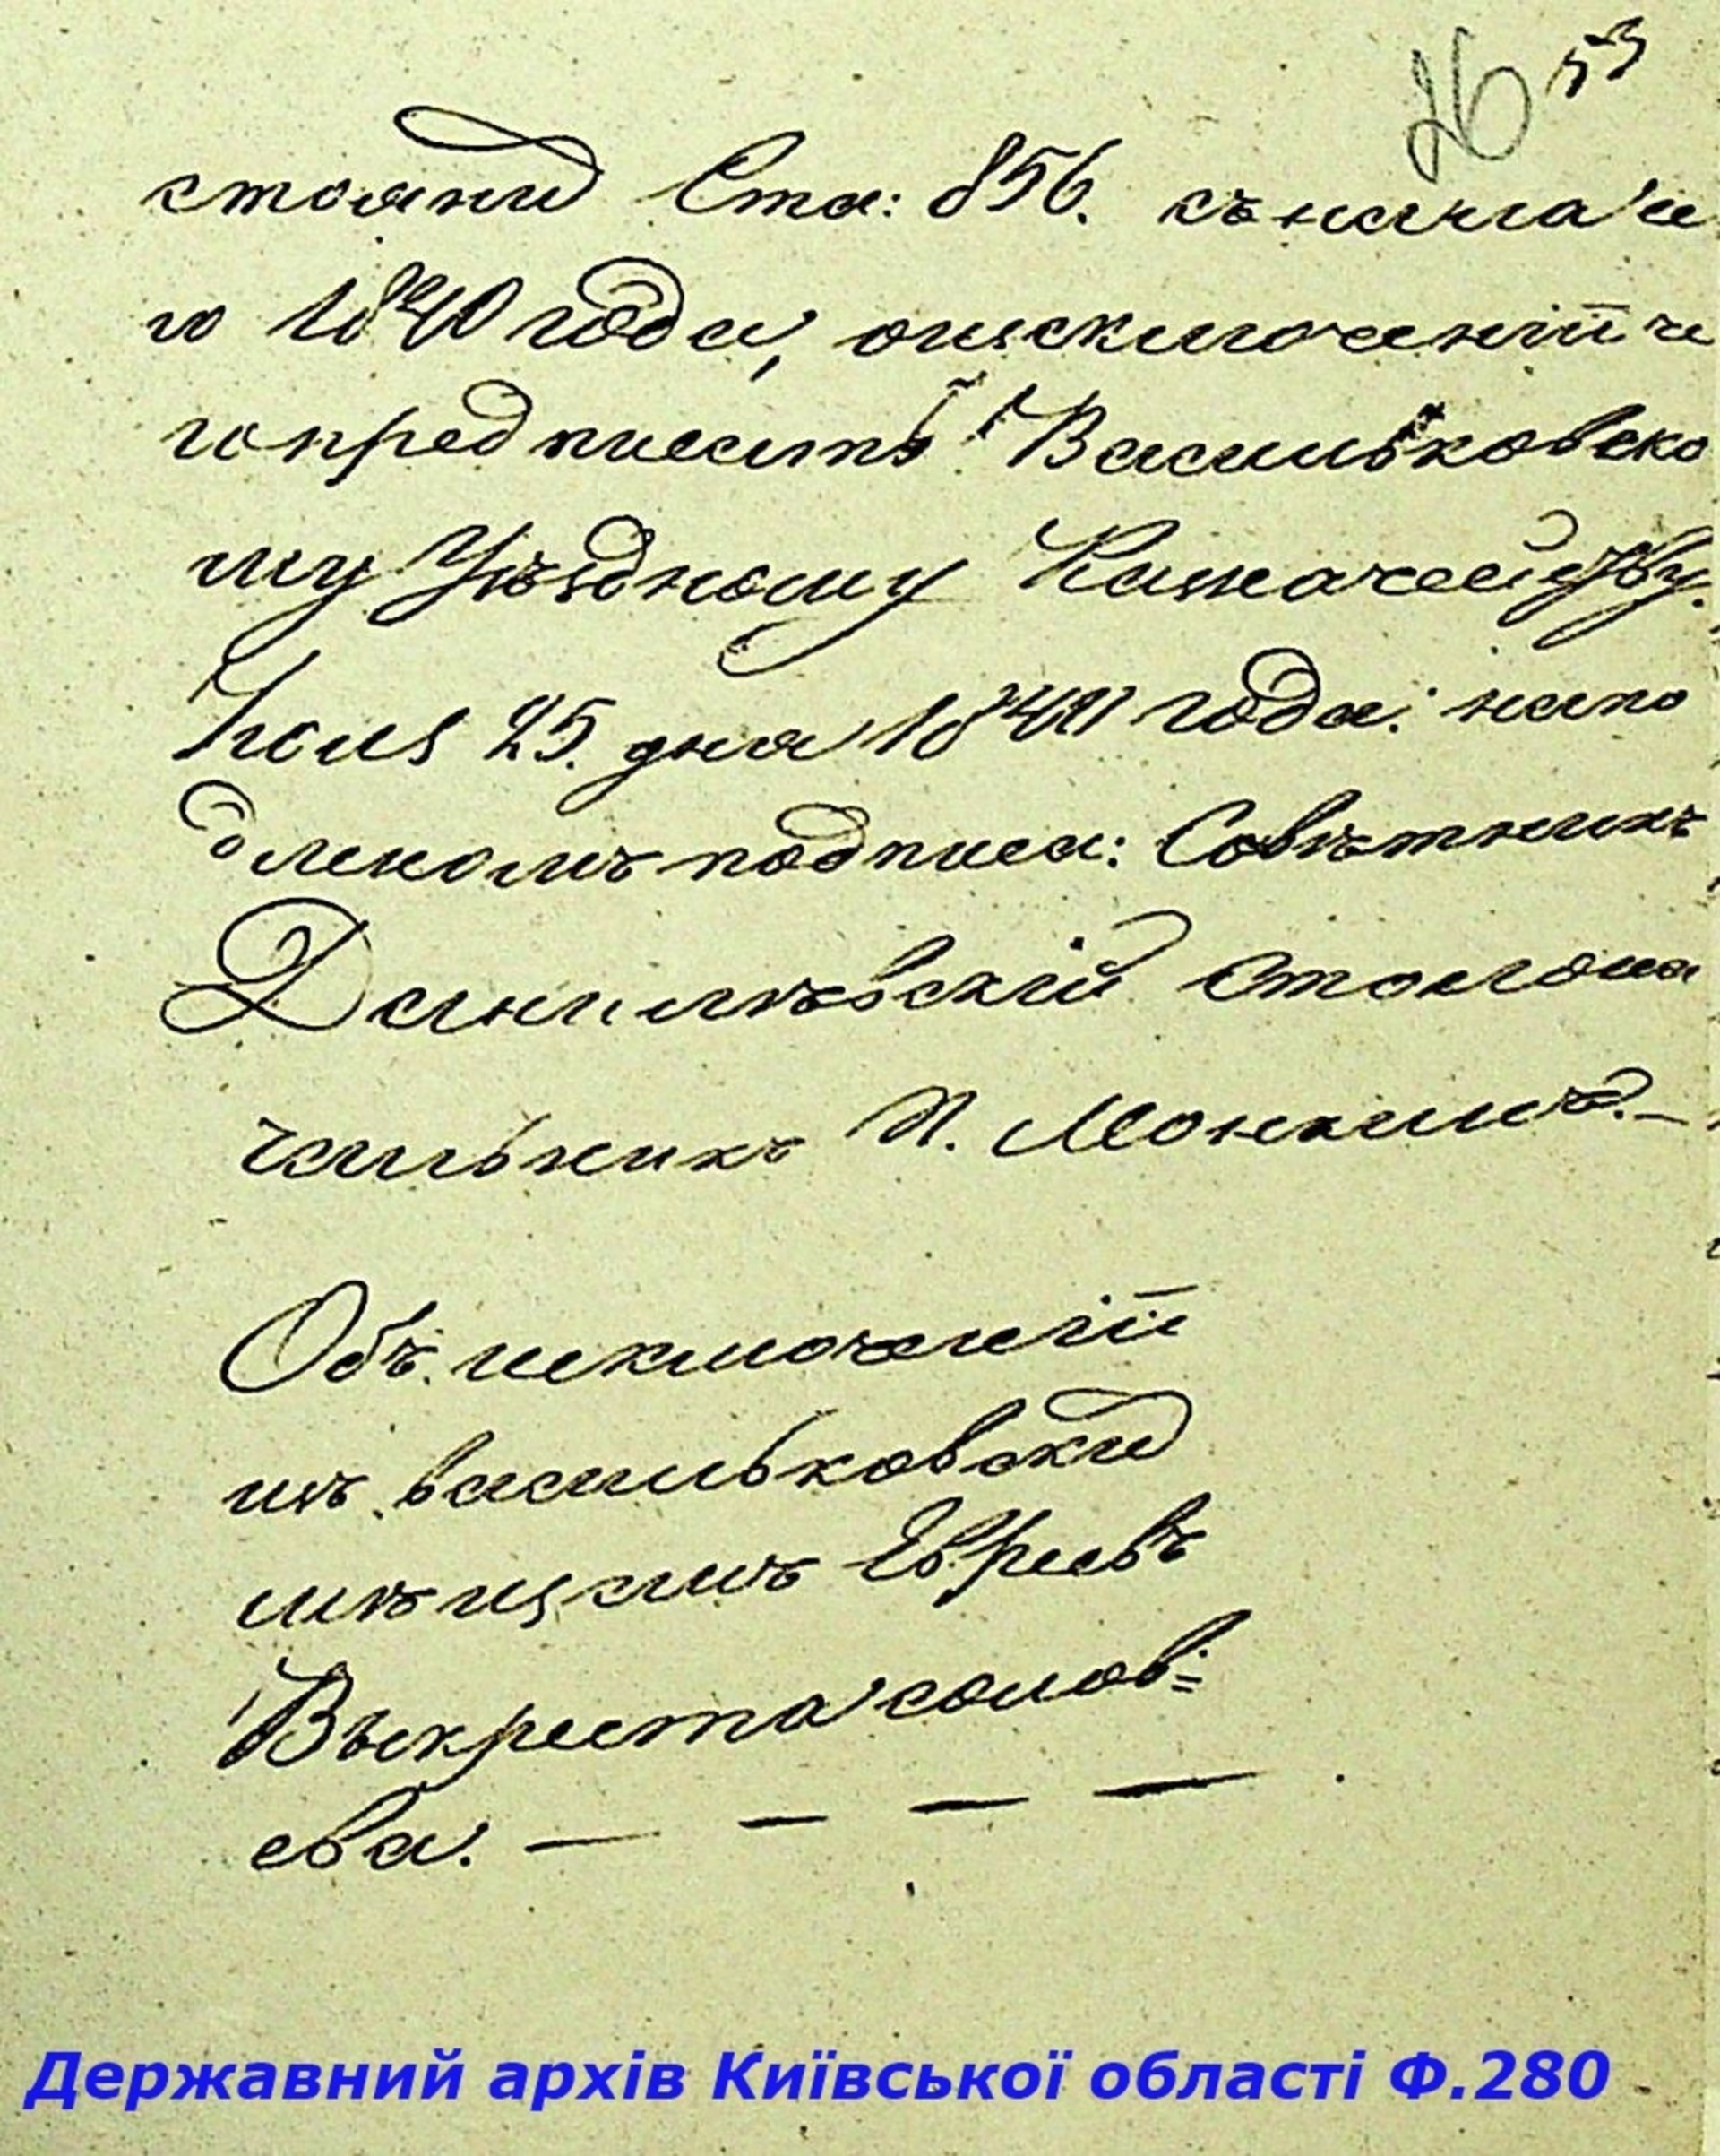 26 53
стояній Ста: 856. съ начала и
го 1840 года, о изключеніи че
го предписать Васильковско
му Уѣздному Казначейству.
Іюля 25. дня 1841 года: на по
длиномъ подписа: Совѣтникъ
Данилѣвскій Столона
чальникъ П. Монкинъ.—
Объ исключеніи
изъ васильковски
мѣщанъ Евреевъ
Выкреста солов=
ева. — — — —
Державний архів Київської області Ф.280